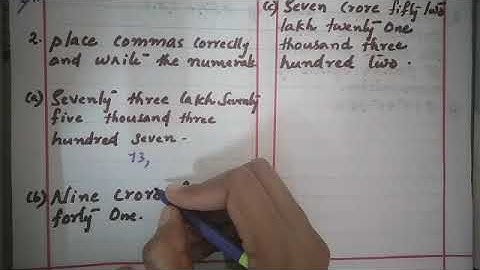 2. place commas correctly
and write the numerals
(a) Seventy three lakh Seventy
five thousand three
hundred seven.
73,
(b) Nine crore
forty One.
(c) Seven Crore fifty two
lakh twenty One
thousand three
hundred two.